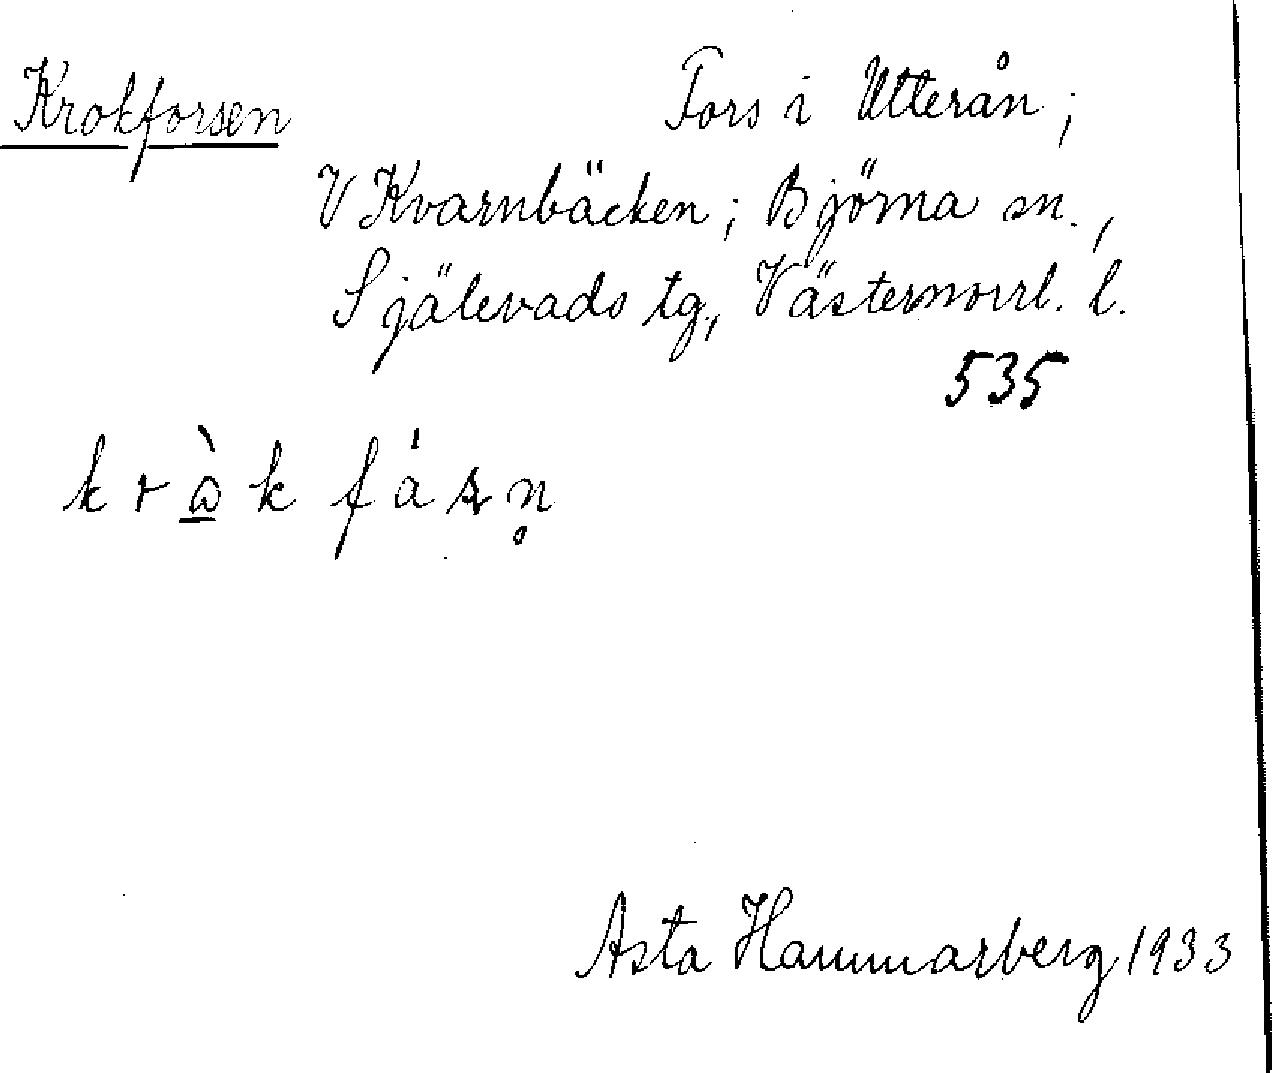 Krokforsen Fors i Utterån;
V Kvarnbäcken; Björna sn.,
Själevads tg., Västernorrl. l.
535
Asta Hammarberg 1933